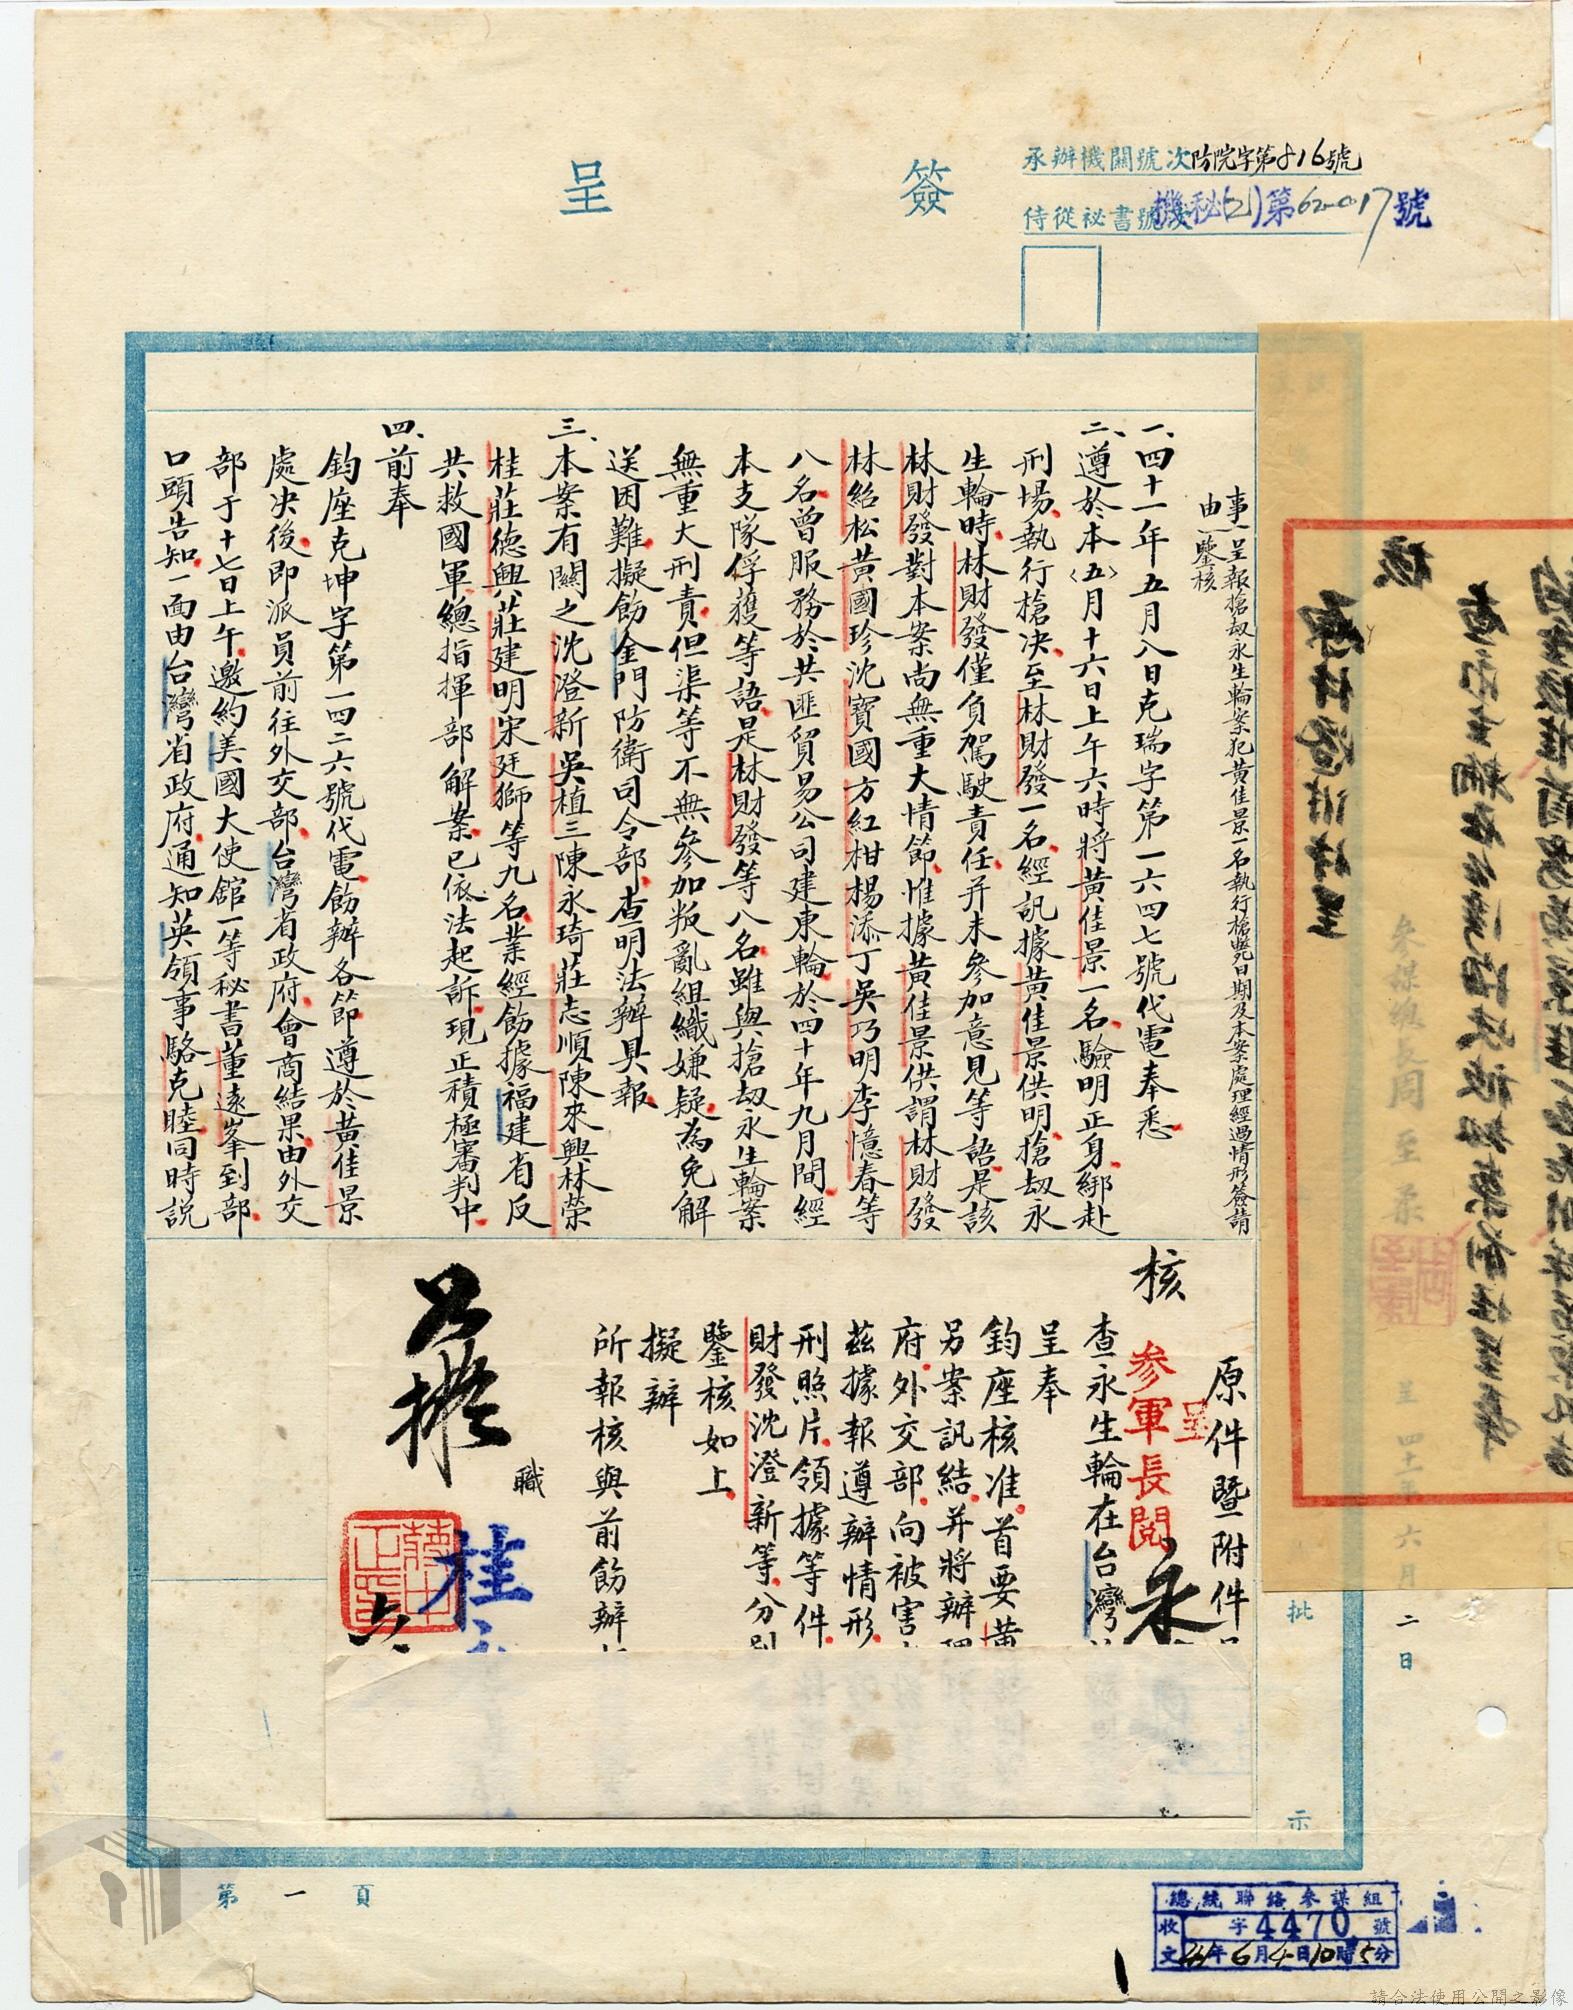 簽呈
承辦機關號次防院字第816號
侍從祕書號次機秘(乙)第62-0017號
事由:呈報搶刼永生輪案犯黃佳景一名執行槍斃日期及本案處理經過情形簽請
鑒核
一、四十一年五月八日克瑞字第一六四七號代電奉悉
二、遵於本〈五〉月十六日上午六時將黃佳景一名驗明正身綁赴
刑場執行槍決至林財發一名經訊據黃佳景供明搶刼永
生輪時林財發僅負駕駛責任并未參加意見等語是該
林財發對本案尚無重大情節惟據黃佳景供謂林財發
林紹松黃國珍沈寶國方紅柑楊添丁吳巧明李憶春等
八名曾服務於共匪貿易公司建東輪於四十年九月間經
本支隊俘獲等語是林財發等八名雖與搶刼永生輪案
無重大刑責但渠等不無參加叛亂組織嫌疑為免解
送困難擬飭金門防衛司令部查明法辦具報
三、本案有關之沈澄新吳植三陳永琦莊志順陳來興林榮
桂莊德興莊建明宋廷獅等九名業經飭據福建省反
共救國軍總指揮部解案已依法起訴現正積極審判中
四、前奉
鈞座克坤字第一四二六號代電飭辦各節遵於黃佳景
處決後即派員前往外交部台灣省政府會商結果由外交
部于十七日上午邀約美國大使舘一等秘書董遠峯到部
口頭告知一面由台灣省政府通知英領事駱克睦同時說
原件暨附件呈
核
參軍長閱
永
查永生輪在台灣
呈奉
鈞座核准首要黃
另案訊結并將辦理
府外交部向被害
茲據報遵辦情形
刑照片領據等件
財發沈澄新等分別
鑒核如上
擬辦
所報核與前飭辦
職
桂
如擬
六
參謀總長周至柔
呈四十一年六月二日
批示
第一頁
總統聯絡參謀組
收文 字4470號
41年6月4日10時5分
請合法使用公開之影像